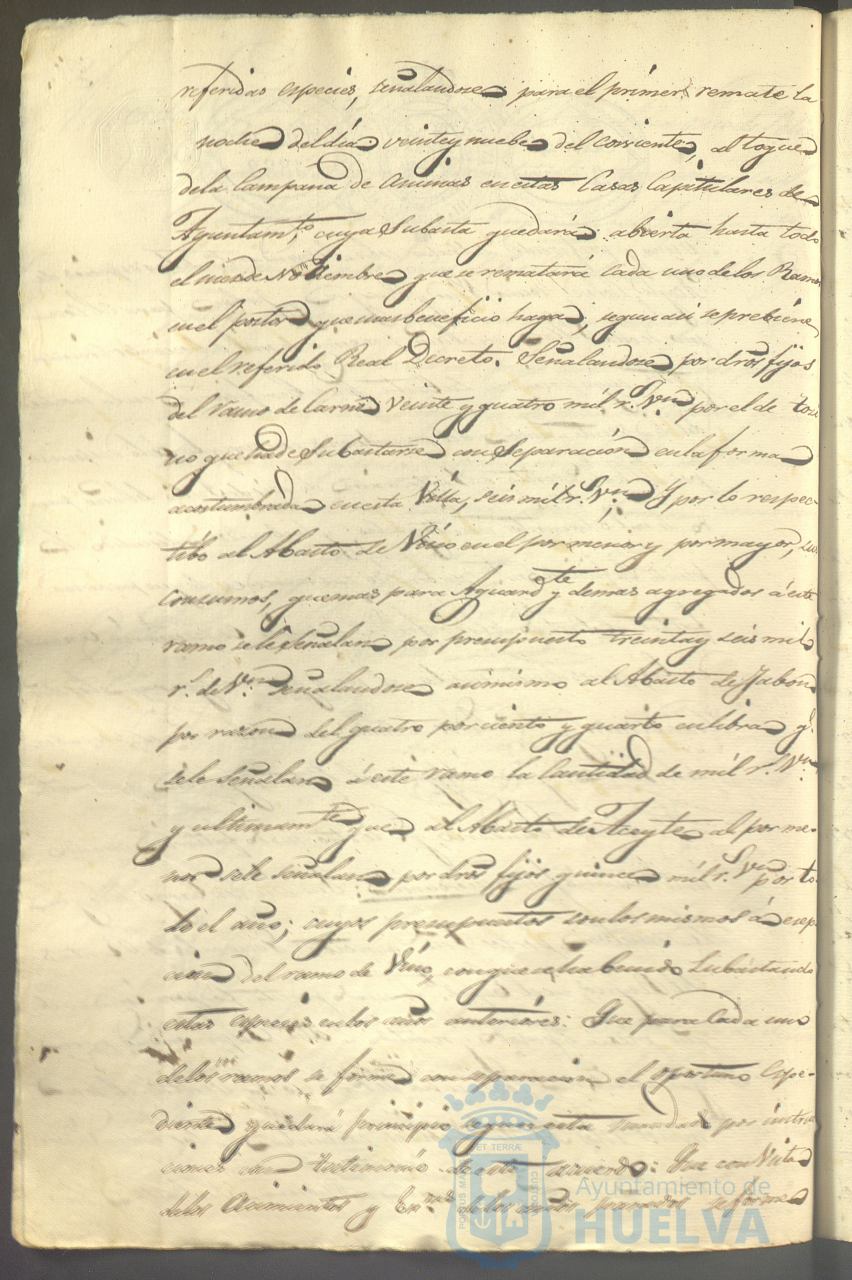 referidas especies, señalandose para el primer remate la
noche del dia veinte y nuebe del corriente, al toque
de la Campana de Animas en estas Casas Capitulares de
Ayuntam.to, cuya Subasta quedará abierta hasta todo
el mes de Nobiembre que se rematará cada uno de los Ramos
en el postor que mas beneficio haga, segun asi se prebiene
en el referido Real Decreto. Señalandose por dros fijos
del ramo de Carne Veinte y quatro mil r.s Vn por el de toci
no que ha de Subastarse con Separacion en la forma
acostumbrada en esta Villa, seis mil r.s Vn Y por lo respec-
tibo al Abasto de Vino en el por menor y por mayor, sus
consumos, que mas para Aguard.te y demas agregados á este
ramo se le Señalan por presupuesto treinta y seis mil
r.s de V.n Señalandose asimismo al Abasto de Jabon
por razon del quatro por ciento y quarto en libra q.e
se le Señalan á este ramo la Cantidad de mil r.s V.n
y ultimam.te que al Abasto de Aceyte al por me-
nor se le Señalan por dros fijos quince mil r.s Vn por to-
do el año; cuyos presupuestos son los mismos á excep-
cion del ramo de Vino, con que se ha benido Subastando
estas especies en los años anteriores: Que para Cada uno
de los ramos se forme con separacion el oportuno Espe-
diente y quedará principio segun esta mandado por instruc
ciones con testimonio de este acuerdo: Que con Vista
de los Asimientos y de los años pasados se forme
PORTUS MARIS ET TERRÆ CUSTODIA
Ayuntamiento de
HUELVA